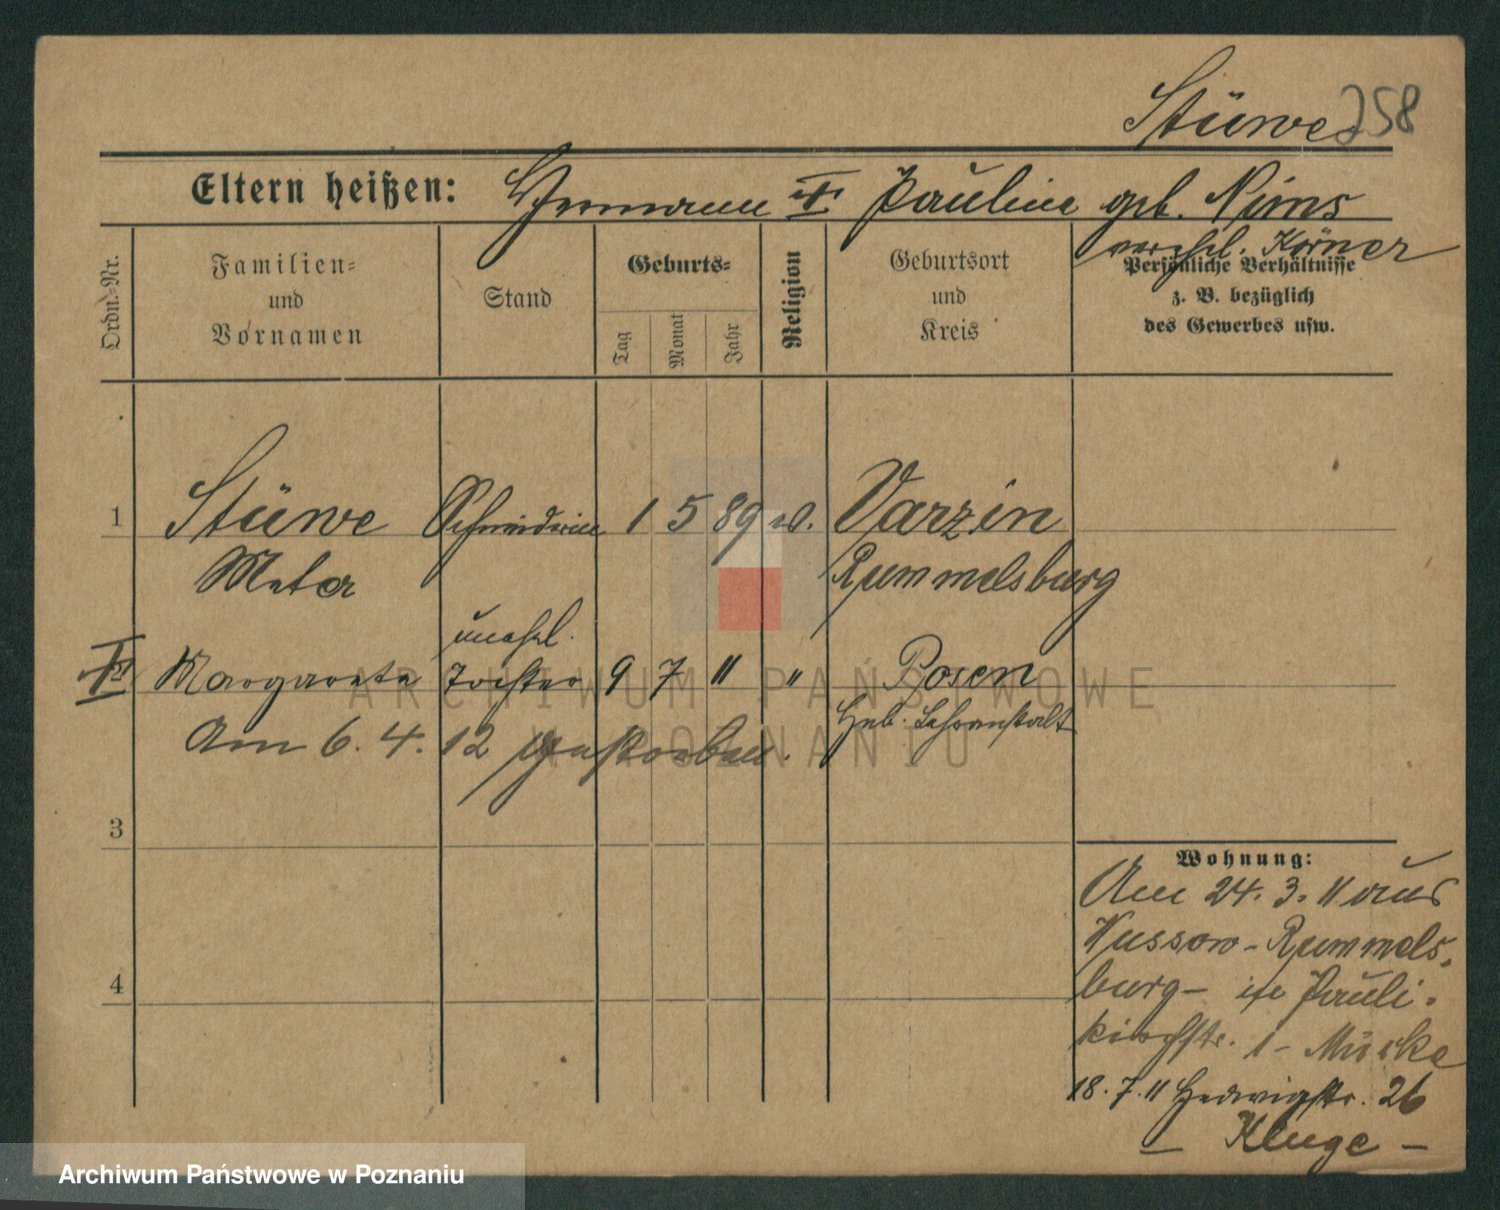 Stüwe 258
Eltern heißen: Hermann † Pauline geb. Nims
verehel. Körner
Ordn.-Nr.
Familien-
und
Vornamen
Stand
Geburts-
Tag
Monat
Jahr
Religion
Geburtsort
und
Kreis
Persönliche Verhältnisse
z. B. bezüglich
des Gewerbes usw.
1 Stüwe Schneiderin 1 5 89 ev. Varzin
Meta Rummelsburg
unehel.
† Margarete Tochter 9 7 11 " Posen
Heb. Lehranstalt
Am 6. 4. 12 gestorben.
3
4
Wohnung:
Am 24. 3. 11 aus
Wussow - Rummels-
burg - Pauli-
kirchstr. 1 -
18. 7. 11 Hedwigstr. 26
- Kluge -
ARCHIWUM PAŃSTWOWE
W POZNANIU
Archiwum Państwowe w Poznaniu